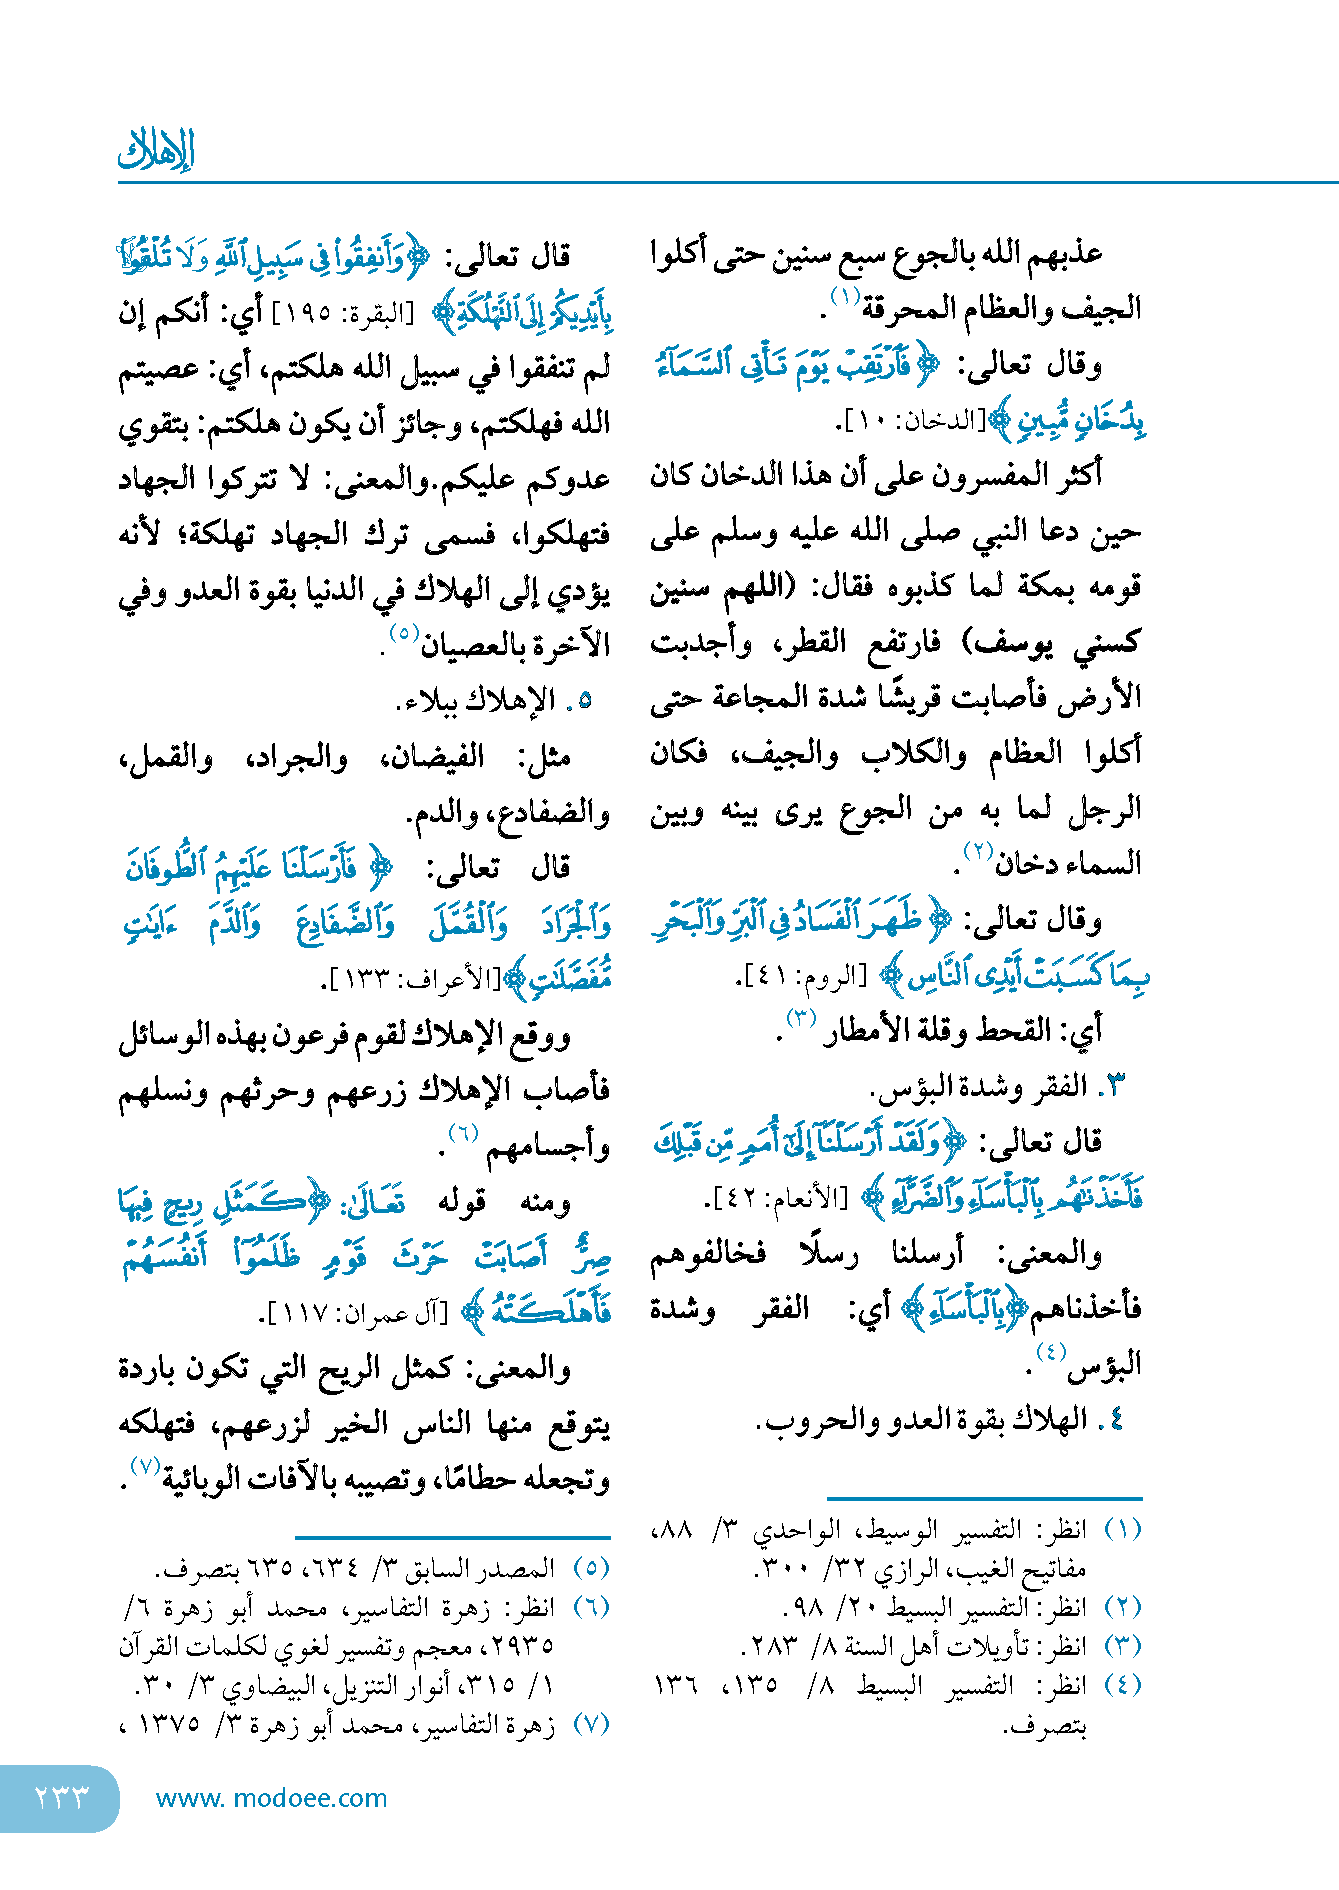 الإهلاك
عذبهم الله بالجوع سبع سنين حتى أكلوا
الجيف والعظام المحرقة(١).
وقال تعالى: ﴿فَٱرْتَقِبْ يَوْمَ تَأْتِى ٱلسَّمَآءُ
بِدُخَانٍ مُّبِينٍ﴾[الدخان: ١٠].
أكثر المفسرون على أن هذا الدخان كان
حين دعا النبي صلى الله عليه وسلم على
قومه بمكة لما كذبوه فقال: (اللهم سنين
كسني يوسف) فارتفع القطر، وأجدبت
الأرض فأصابت قريشًا شدة المجاعة حتى
أكلوا العظام والكلاب والجيف، فكان
الرجل لما به من الجوع يرى بينه وبين
السماء دخان(٢).
وقال تعالى: ﴿ظَهَرَ ٱلْفَسَادُ فِى ٱلْبَرِّ وَٱلْبَحْرِ
بِمَا كَسَبَتْ أَيْدِى ٱلنَّاسِ﴾ [الروم: ٤١].
أي: القحط وقلة الأمطار (٣).
٣. الفقر وشدة البؤس.
قال تعالى: ﴿وَلَقَدْ أَرْسَلْنَآ إِلَىٰٓ أُمَمٍ مِّن قَبْلِكَ
فَأَخَذْنَٰهُم بِٱلْبَأْسَآءِ وَٱلضَّرَّآءِ﴾ [الأنعام: ٤٢].
والمعنى: أرسلنا رسلًا فخالفوهم
فأخذناهم﴿بِٱلْبَأْسَآءِ﴾ أي: الفقر وشدة
البؤس(٤).
٤. الهلاك بقوة العدو والحروب.
(١) انظر: التفسير الوسيط، الواحدي ٣/ ٨٨،
مفاتيح الغيب، الرازي ٣٢/ ٣٠٠.
(٢) انظر: التفسير البسيط ٢٠/ ٩٨.
(٣) انظر: تأويلات أهل السنة ٨/ ٢٨٣.
(٤) انظر: التفسير البسيط ٨/ ١٣٥، ١٣٦
بتصرف.
قال تعالى: ﴿وَأَنفِقُوا۟ فِى سَبِيلِ ٱللَّهِ وَلَا تُلْقُوا۟
بِأَيْدِيكُمْ إِلَى ٱلتَّهْلُكَةِ﴾ [البقرة: ١٩٥] أي: أنكم إن
لم تنفقوا في سبيل الله هلكتم، أي: عصيتم
الله فهلكتم، وجائز أن يكون هلكتم: بتقوي
عدوكم عليكم.والمعنى: لا تتركوا الجهاد
فتهلكوا، فسمى ترك الجهاد تهلكة؛ لأنه
يؤدي إلى الهلاك في الدنيا بقوة العدو وفي
الآخرة بالعصيان(٥).
٥. الإهلاك ببلاء.
مثل: الفيضان، والجراد، والقمل،
والضفادع، والدم.
قال تعالى: ﴿فَأَرْسَلْنَا عَلَيْهِمُ ٱلطُّوفَانَ
وَٱلْجَرَادَ وَٱلْقُمَّلَ وَٱلضَّفَادِعَ وَٱلدَّمَ ءَايَٰتٍ
مُّفَصَّلَٰتٍ﴾[الأعراف: ١٣٣].
ووقع الإهلاك لقوم فرعون بهذه الوسائل
فأصاب الإهلاك زرعهم وحرثهم ونسلهم
وأجسامهم (٦).
ومنه قوله تَعَالَىٰ: ﴿كَمَثَلِ رِيحٍ فِيهَا
صِرٌّ أَصَابَتْ حَرْثَ قَوْمٍ ظَلَمُوٓا۟ أَنفُسَهُمْ
فَأَهْلَكَتْهُ﴾ [آل عمران: ١١٧].
والمعنى: كمثل الريح التي تكون باردة
يتوقع منها الناس الخير لزرعهم، فتهلكه
وتجعله حطامًا، وتصيبه بالآفات الوبائية(٧).
(٥) المصدر السابق ٣/ ٦٣٤، ٦٣٥ بتصرف.
(٦) انظر: زهرة التفاسير، محمد أبو زهرة ٦/
٢٩٣٥، معجم وتفسير لغوي لكلمات القرآن
١/ ٣١٥، أنوار التنزيل، البيضاوي ٣/ ٣٠.
(٧) زهرة التفاسير، محمد أبو زهرة ٣/ ١٣٧٥ ،
٢٣٣
www. modoee.com